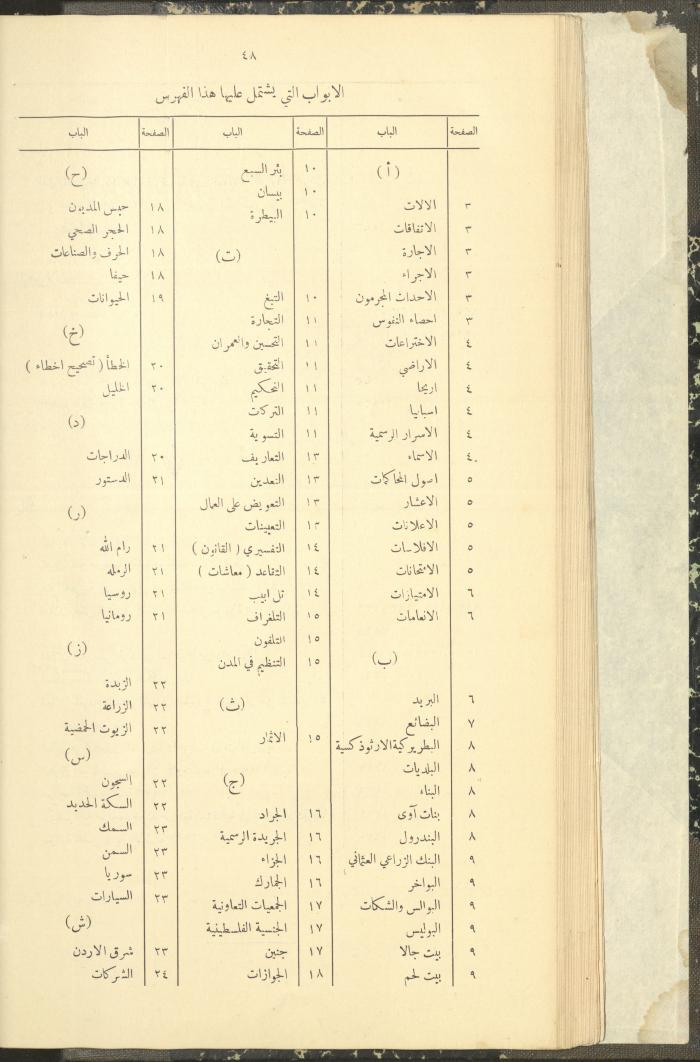 ٤٨
الابواب التي يشتمل عليها هذا الفهرس
الصفحة الباب
(أ)
٣ الالات
٣ الاتفاقات
٣ الاجارة
٣ الاجراء
٣ الاحداث المجرمون
٣ احصاء النفوس
٤ الاختراعات
٤ الاراضي
٤ اريحا
٤ اسبانيا
٤ الاسرار الرسمية
٤ الاسماء
٥ اصول المحاكمات
٥ الاعشار
٥ الاعلانات
٥ الافلاسات
٥ الامتحانات
٦ الامتيازات
٦ الانعامات
(ب)
٦ البريد
٧ البضائع
٨ البطريركية الارثوذكسية
٨ البلديات
٨ البناء
٨ بنات آوى
٨ البندرول
٩ البنك الزراعي العثماني
٩ البواخر
٩ البوالس والشكات
٩ البوليس
٩ بيت جالا
٩ بيت لحم
الصفحة الباب
١٠ بئر السبع
١٠ بيسان
١٠ البيطرة
(ت)
١٠ التبغ
١١ التجارة
١١ التحسين والعمران
١١ التحقيق
١١ التحكيم
١١ التركات
١١ التسوية
١٣ التعاريف
١٣ التعدين
١٣ التعويض على العمال
١٣ التعيينات
١٤ التفسيري ( القانون )
١٤ التقاعد ( معاشات )
١٤ تل ابيب
١٥ التلغراف
١٥ التلفون
١٥ التنظيم في المدن
(ث)
١٥ الاثمار
(ج)
١٦ الجراد
١٦ الجريدة الرسمية
١٦ الجزاء
١٦ الجمارك
١٧ الجمعيات التعاونية
١٧ الجنسية الفلسطينية
١٧ جنين
١٨ الجوازات
الصفحة الباب
(ح)
١٨ حبس المديون
١٨ الحجر الصحي
١٨ الحرف والصناعات
١٨ حيفا
١٩ الحيوانات
(خ)
٢٠ الخطأ ( تصحيح اخطاء )
٢٠ الخليل
(د)
٢٠ الدراجات
٢١ الدستور
(ر)
٢١ رام الله
٢١ الرمله
٢١ روسيا
٢١ رومانيا
(ز)
٢٢ الزبدة
٢٢ الزراعة
٢٢ الزيوت الحمضية
(س)
٢٢ السجون
٢٢ السكة الحديد
٢٣ السمك
٢٣ السمن
٢٣ سوريا
٢٣ السيارات
(ش)
٢٣ شرق الاردن
٢٤ الشركات